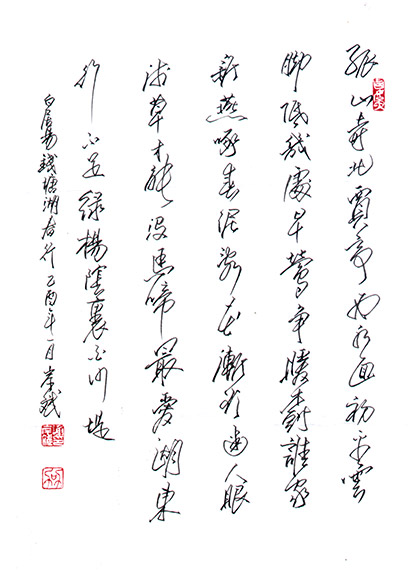 孤山寺北賈亭西水面初平雲
脚低幾處早鶯争暖樹誰家
新燕啄春泥亂花漸欲迷人眼
淺草才能没馬蹄最愛湖東
行不足綠楊陰裏白沙堤
白居易錢塘湖春行乙酉年一月